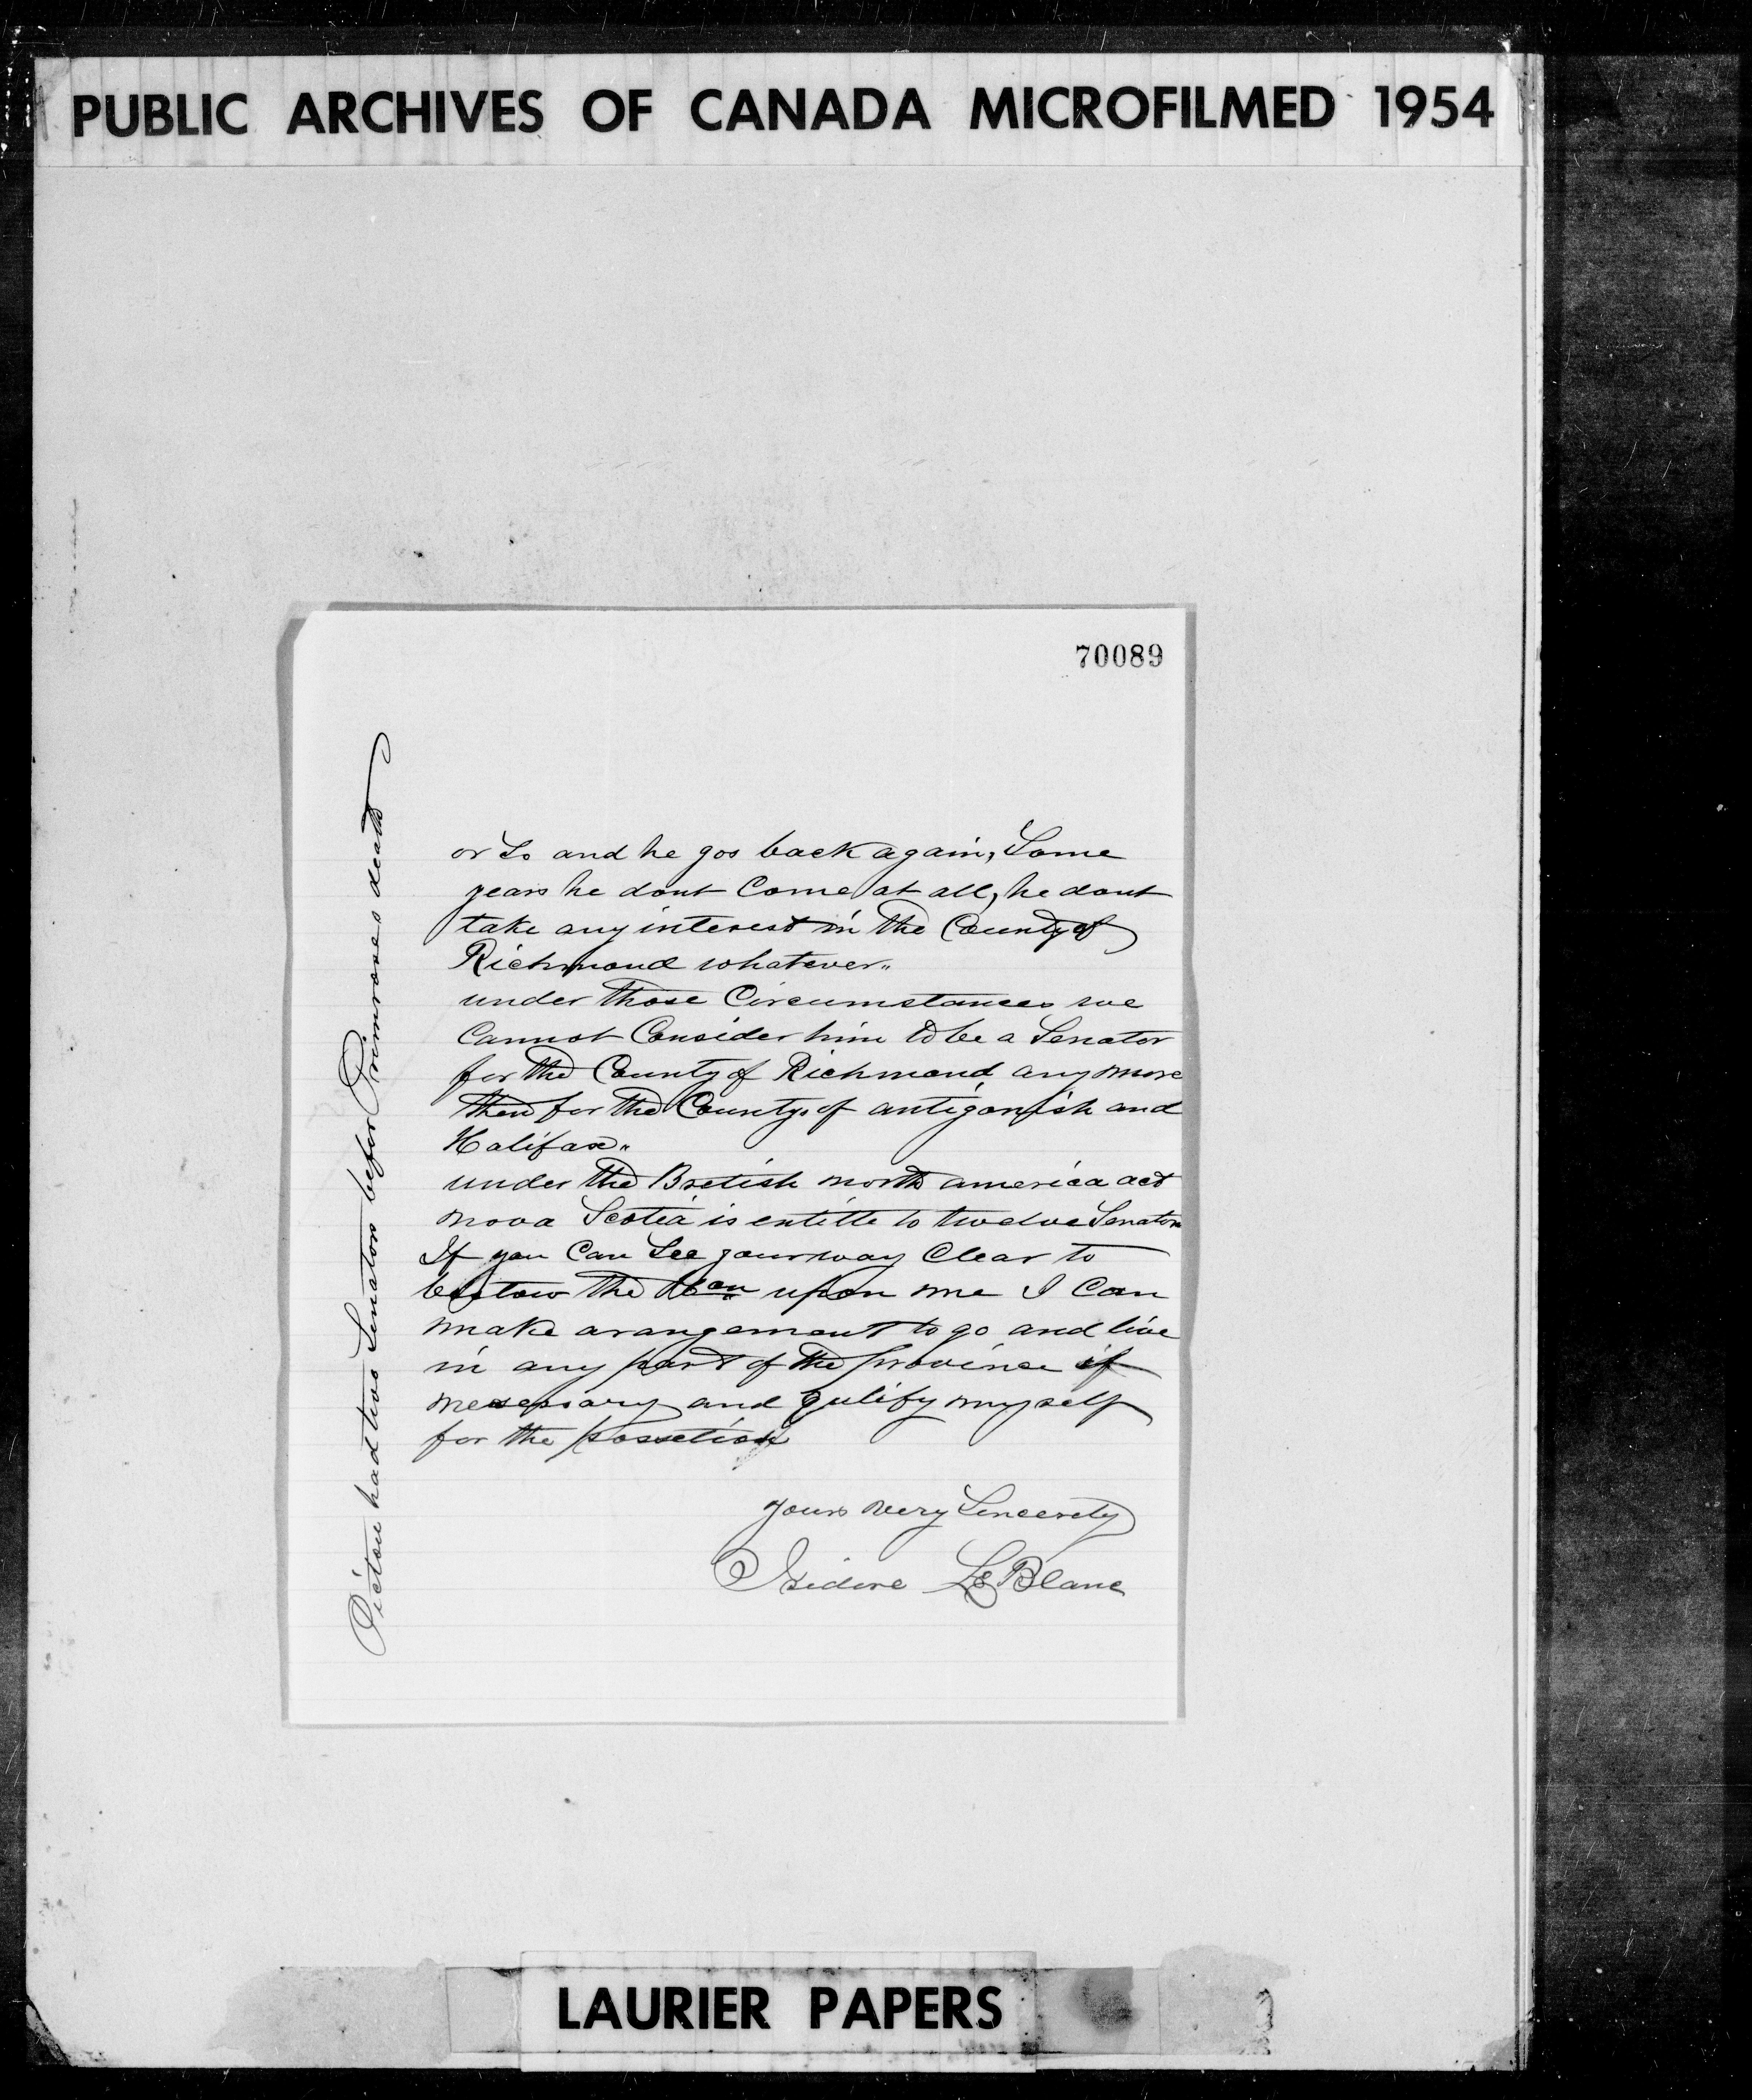 PUBLIC ARCHIVES OF CANADA MICROFILMED 1954
70089
or So and he gos back again, Some
years he dont Come at all, he dont
take any interest in the County of
Richmond whatever„
under those Circumstances we
Cannot Consider him to be a Senator
for the County of Richmond any more
then for the County of antigonish and
Halifax„
under the Bretish north america act
nova Scotia is entitle to twelve Senators
If you Can See your way Clear to
bestow the Hon upon me I Can
make arangement to go and live
in any part of the province if
nesessary and qulify myself
for the possetion
yours very Sincerely
Isidore LeBlanc
Pictou had two Senators befor Primroses death
LAURIER PAPERS